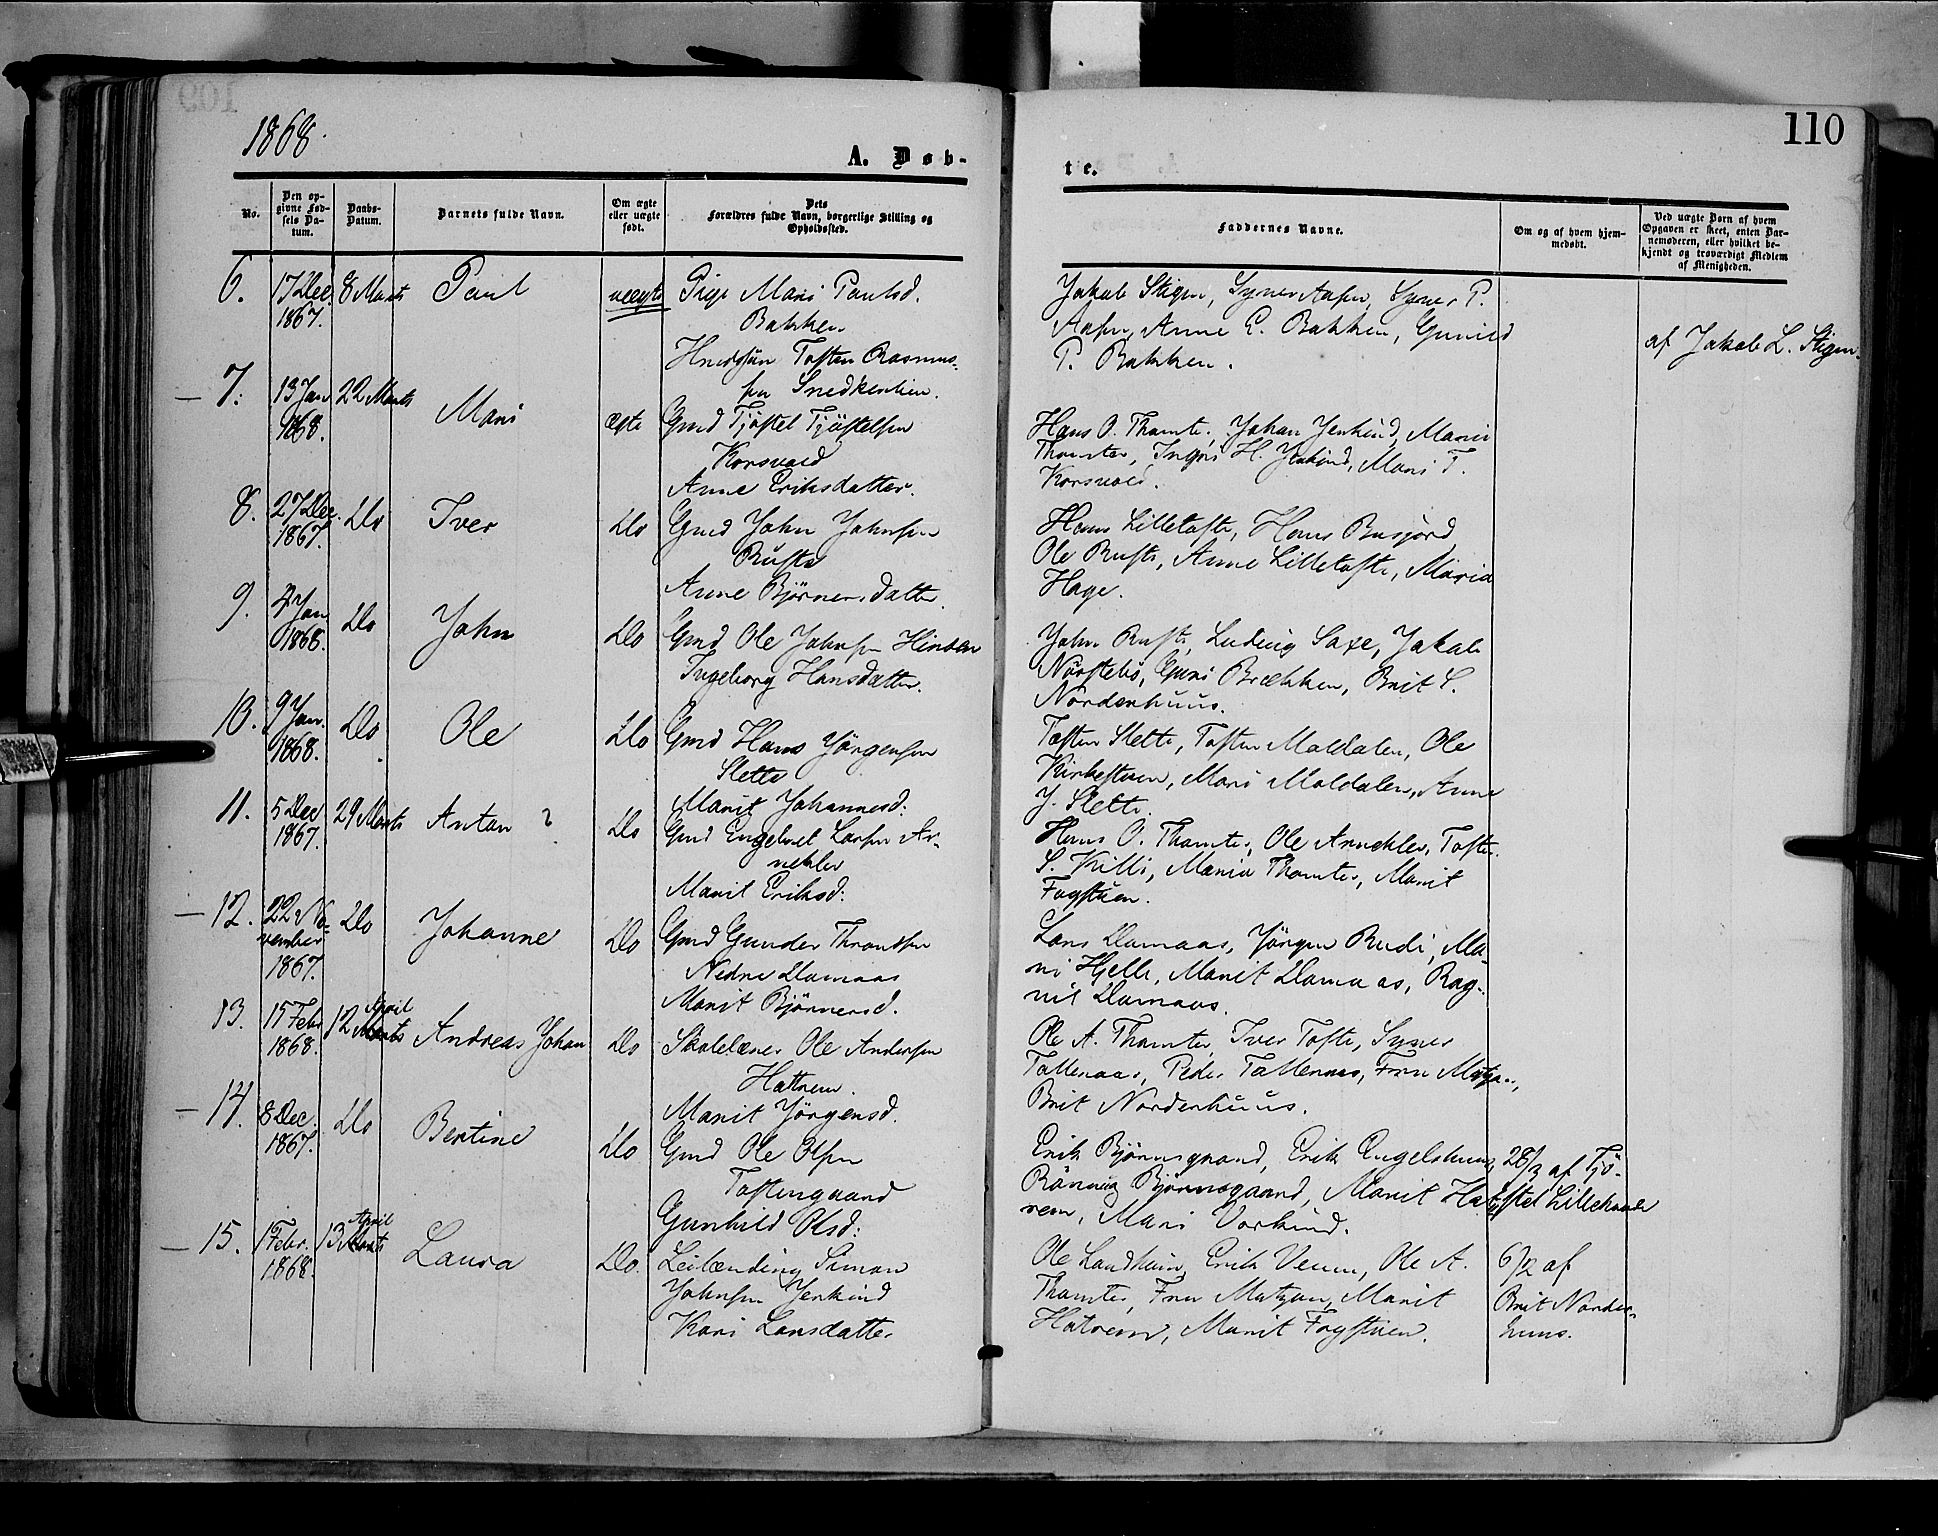 109
1868.
110
A. Døb-
te.
No.
Den op-
givne Fød-
sels Da-
tum.
Daabs-
Datum.
Barnets fulde Navn.
Om ægte
eller uægte
født.
Dets
Forældres fulde Navn, borgerlige Stilling og
Opholdssted.
Faddernes Navne.
Om og af hvem hjem-
medøbt.
Ved uægte Børn af hvem
Opgaven er skeet, enten Bar-
nemoderen, eller hvilket be-
kjendt og troværdigt Medlem
af Menigheden.
6. 17 Dec 1867. 8 Marts Paul uægte Pige Mari Paulsd.
Bakken
Tosten Rasmus-
sen
Jakob Stigen, Syver Aasen, Syver P.
Aasen, Anne E. Bakken, Gunild
P. Bakken.
af Jakob L. Stigen.
7. 13 Jan 1868. 22 Marts Mari ægte Gmd Tjøstel Tjøstelsen
Korsvold
Anne Eriksdatter.
Hans O. Thomte, Johan Jenkind, Mari
Thomter, Ingri H. Jenkind, Mari T.
Korsvold.
8. 27 Dec. 1867. Do Iver Do Gmd John Johnsen
Ruste
Anne Bjørnersdatter.
Hans Lilletofte, Hans Busjord
Ole Ruste, Anne Lilletofte, Maria
Hage.
9. 4 Jan 1868. Do John Do Gmd Ole Johnsen Hinden
Ingeborg Hansdatter.
John Ruste, Ludvig Saxe, Jakob
Nørstebø, Guri Brækken, Brit S.
Norderhuus.
10. 9 Jan. 1868. Do Ole Do Gmd Hans Jørgensen
Slette
Marit Johannesd.
Tosten Slette, Tosten Moldalen, Ole
Kirkestuen, Mari Moldalen, Anne
J. Slette.
11. 5 Dec 1867. 29 Marts Anton ? Do Gmd Engebret Larsen Ar-
nekler
Marit Eriksd.
Hans O. Thomter, Ole Arnekler, Tosten
S. Killi, Maria Thomter, Marit
Fogstuen.
12. 22 No-
vember
1867. Do Johanne Do Gmd Gunder Throndsen
Nedre Domaas
Marit Bjørnersd.
Lars Domaas, Jørgen Rudi, Ma-
ri Hjelle, Marit Domaas, Rag-
nil Domaas.
13. 15 Febr 1868. 12 April Marts Andreas Johan Do Skolelærer Ole Andersen
Hattrem.
Marit Jørgensd.
Ole A. Thomter, Iver Tofte, Syver
Talleraas, Peder Talleraas, Fru Motzau,
Brit Norderhuus.
14. 8 Dec. 1867. Do Bertine Do Gmd Ole Olsen
Tostengaard
Gunhild Olsd.
Erik Bjørnsgaard, Erik Engelshuus,
Rønnig Bjørnsgaard, Marit Hat-
rem, Mari Vorkind.
28/3 af Tjø-
stel Lillehaave
15. 1 Febr. 1868. 13 April Marts Laura Do. Leilænding Simon
Johnsen Jenkind
Kari Larsdatter
Ole Landheim, Erik Veum, Ole A.
Thomter, Fru Motzau, Marit
Hatrem, Marit Fogstuen.
6/2 af
Brit Norder-
huus.